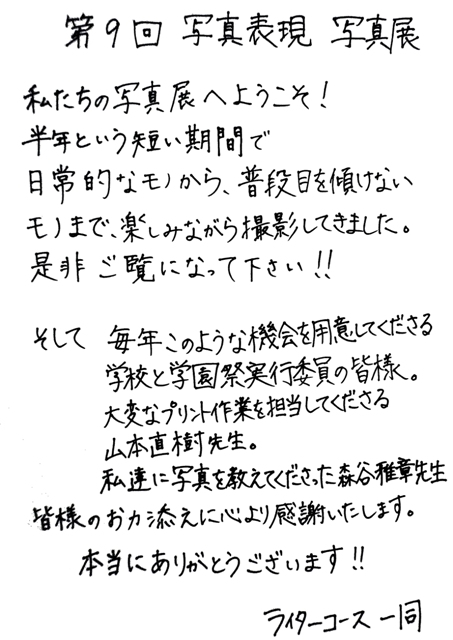 第9回 写真表現 写真展
私たちの写真展へようこそ！
半年という短い期間で
日常的なモノから、普段目を傾けない
モノまで、楽しみながら撮影してきました。
是非ご覧になって下さい！！
そして 毎年このような機会を用意してくださる
学校と学園祭実行委員の皆様。
大変なプリント作業を担当してくださる
山本直樹先生。
私達に写真を教えてくださった森谷雅章先生
皆様のお力添えに心より感謝いたします。
本当にありがとうございます！！
ライターコース一同